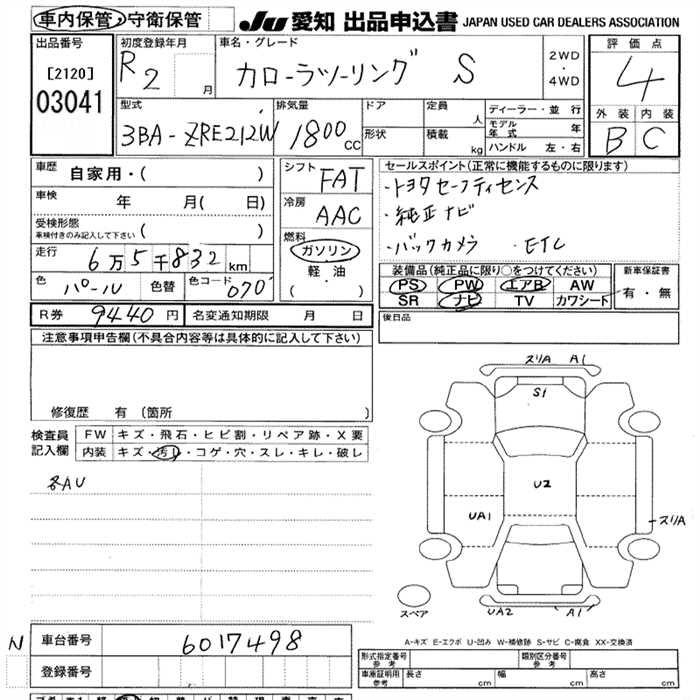 車内保管・守衛保管
JU 愛知 出品申込書 JAPAN USED CAR DEALERS ASSOCIATION
出品番号
[2120]
03041
初度登録年月
R2 月
車名・グレード
カローラツーリング S
2WD
・
4WD
評価点
4
外装 内装
B C
型式
3BA-ZRE212W
排気量
1800 cc
ドア
形状
定員 人
積載 kg
ディーラー・並行
モデル年式 年
ハンドル 左・右
車歴 自家用・( )
車検 年 月( 日)
受検形態
車検付きのみ記入して下さい ( )
走行 6万5千832km
色 パール 色替 色コード 070
シフト FAT
冷房 AAC
燃料
ガソリン
軽油
( ・ )
セールスポイント(正常に機能するものに限ります)
・トヨタセーフティセンス
・純正ナビ
・バックカメラ ・ETC
装備品(純正品に限り○をつけてください)
PS PW エアB AW
SR ナビ TV カワシート
新車保証書
有・無
R券 9440円 名変通知期限 月 日
後日品
注意事項申告欄(不具合内容等は具体的に記入して下さい)
修復歴 有(箇所 )
検査員記入欄
FW キズ・飛石・ヒビ割・リペア跡・X要
内装 キズ・汚し・コゲ・穴・スレ・キレ・破レ
各AU
スリA A1
S1
U2
UA1
スリA
UA2 A1
スペア
A-キズ E-エクボ U-凹み W-補修跡 S-サビ C-腐食 XX-交換済
N
車台番号 6017498
登録番号
形式指定番号
参考
類別区分番号
参考
車庫証明用
参考
長さ cm 幅 cm 高さ cm